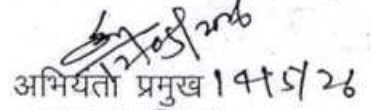 12/05/2026
अभियंता प्रमुख 14/5/26